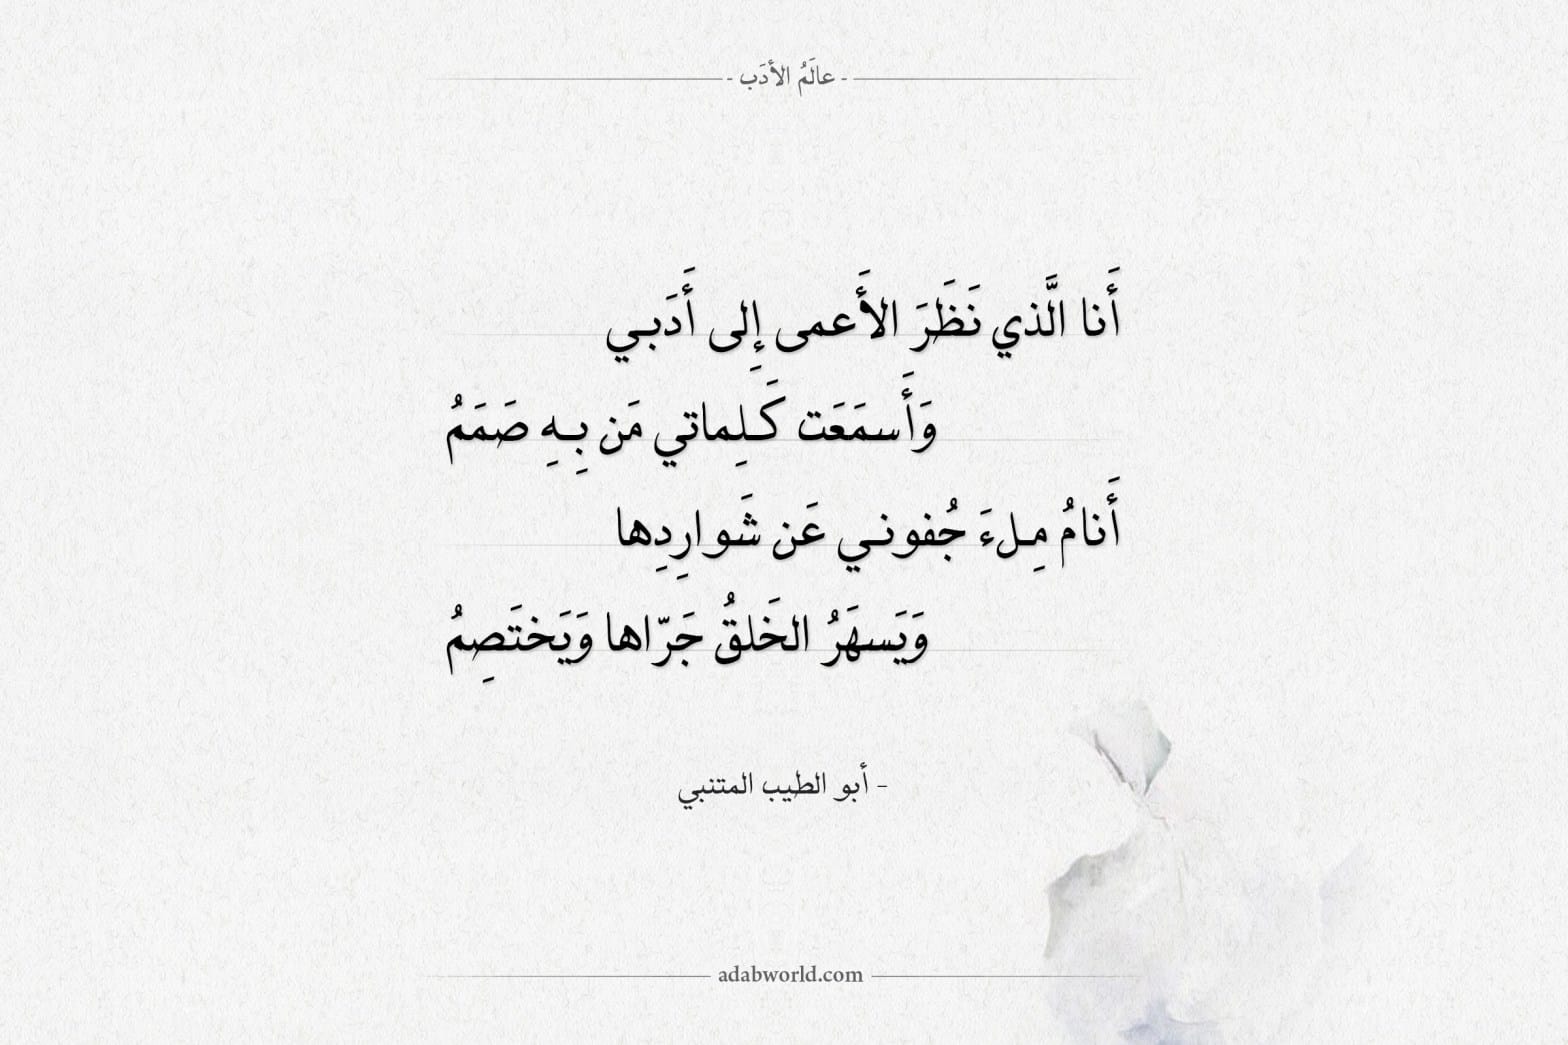 - عالَمُ الأدَب -
أَنا الَّذي نَظَرَ الأَعمى إِلى أَدَبـي
وَأَسمَعَت كَـلِماتي مَن بِـهِ صَمَمُ
أَنامُ مِـلءَ جُفونـي عَن شَوارِدِها
وَيَسهَرُ الخَلقُ جَرّاها وَيَختَصِمُ
- أبو الطيب المتنبي
adabworld.com